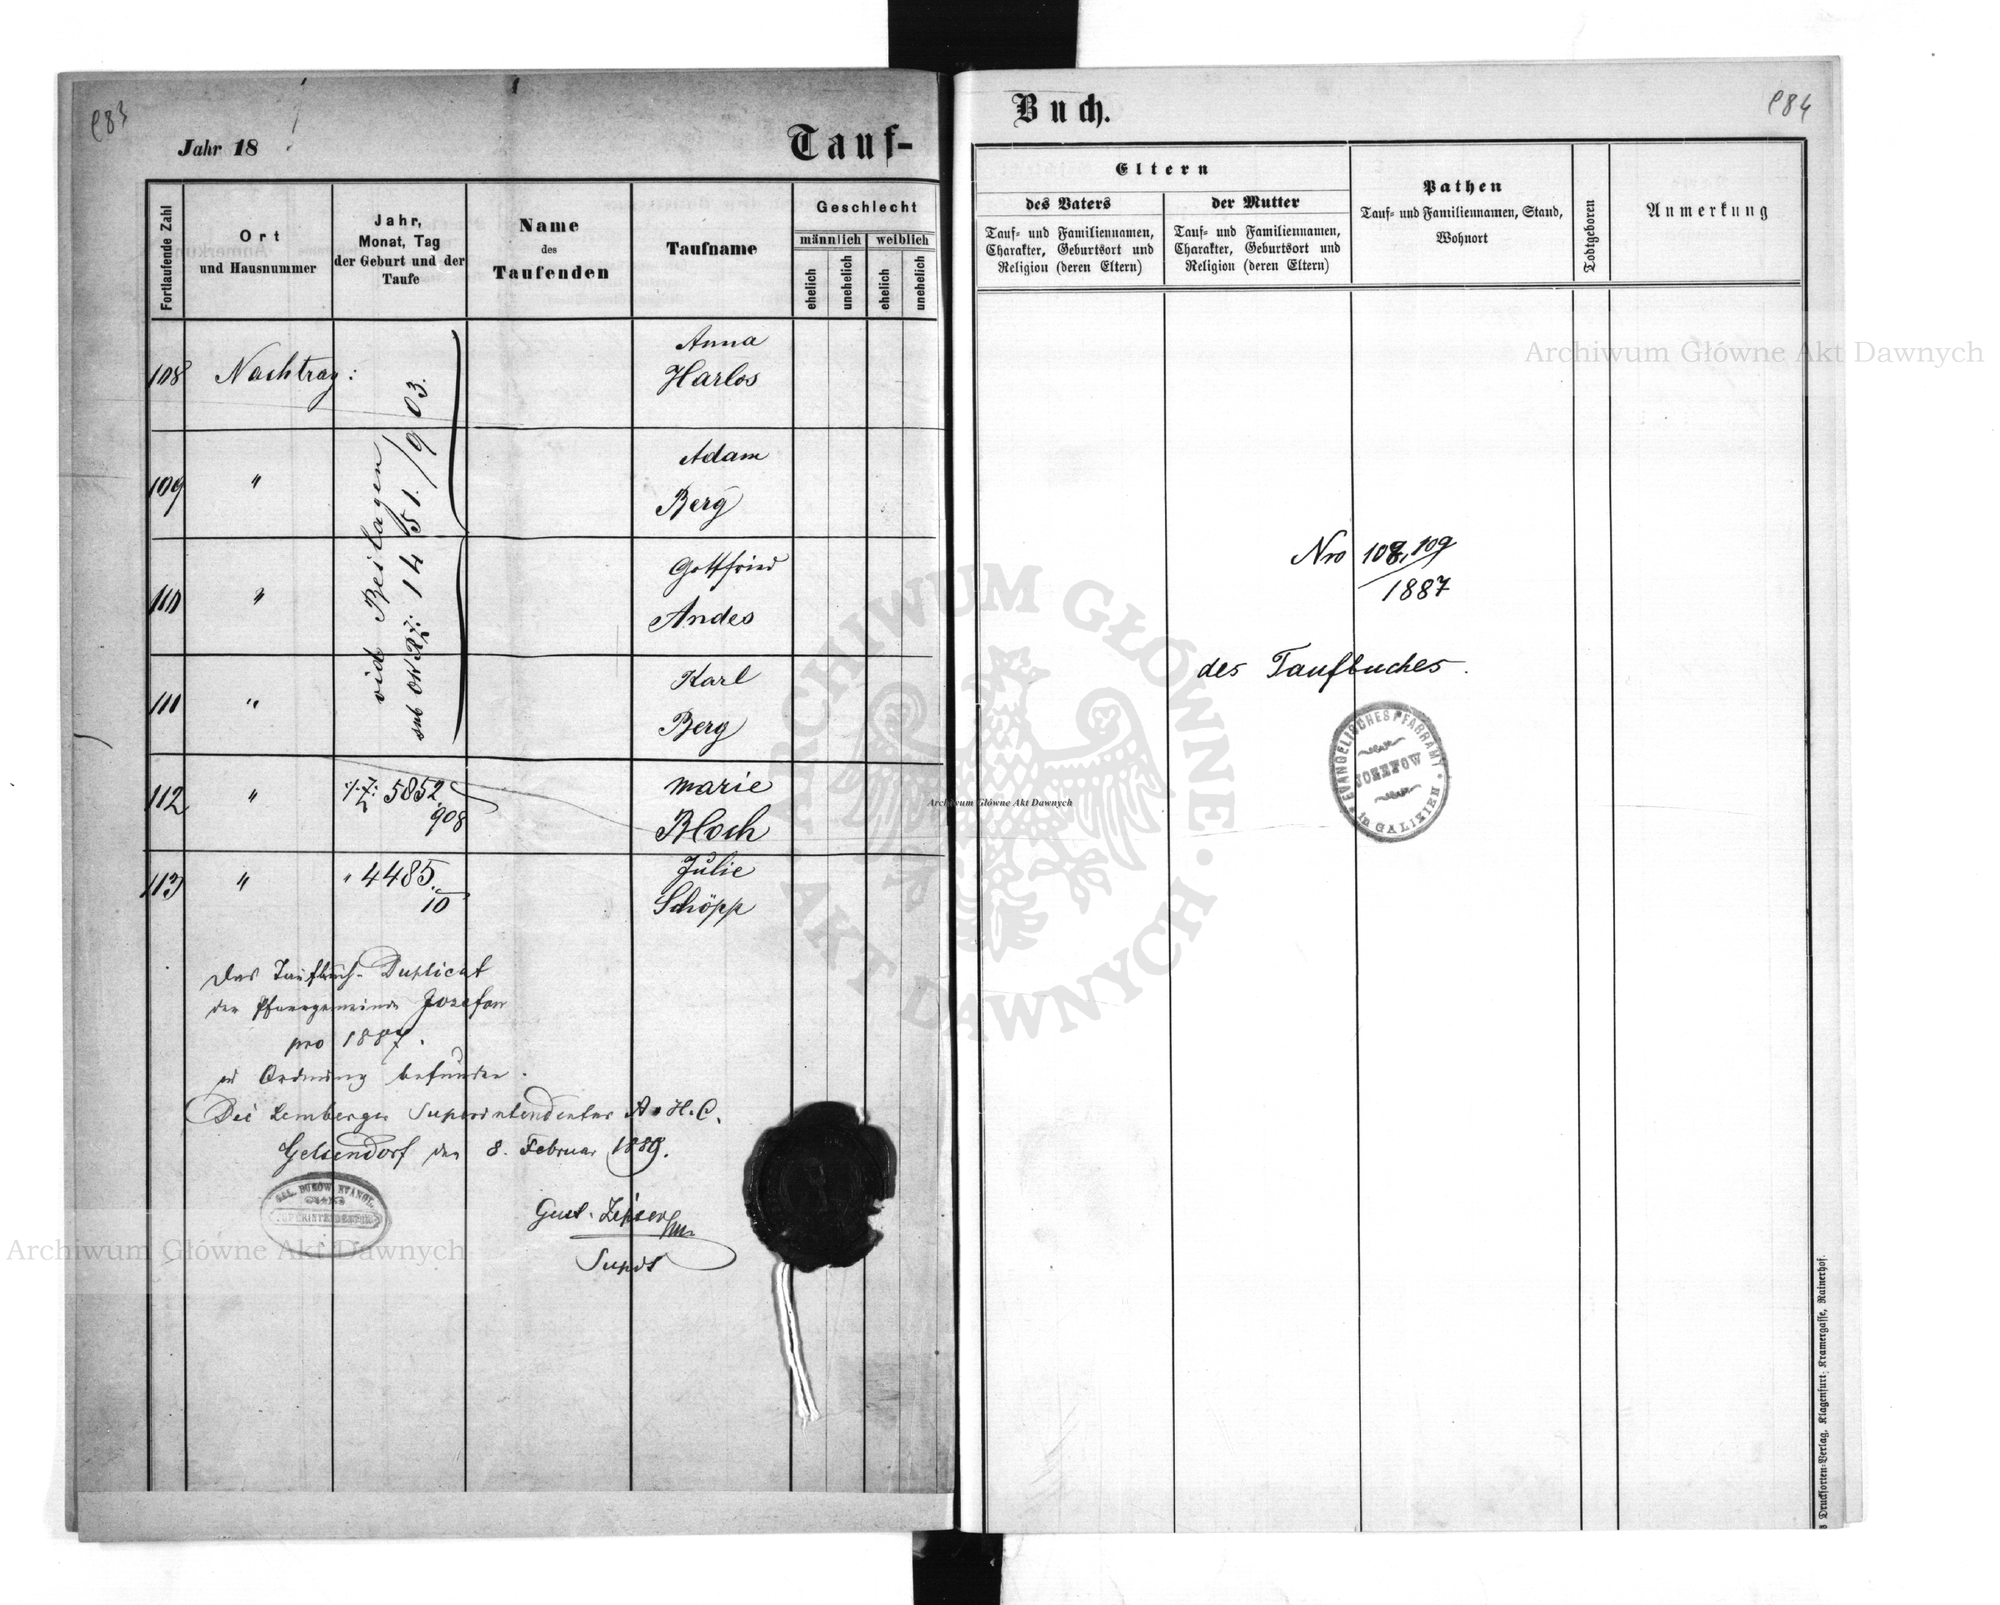 Jahr 18
Tauf-
Fortlaufende Zahl
Ort
und Hausnummer
Jahr,
Monat, Tag
der Geburt und der
Taufe
Name
des
Taufenden
Taufname
Geschlecht
männlich
weiblich
ehelich
unehelich
ehelich
unehelich
108
Nachtrag:
Anna
Harlos
vid Beilagen
1451./903.
109
"
Adam
Berg
110
"
Gottfried
Andes
111
"
Karl
Berg
112
"
5852
908
Marie
Bloch
113
"
" 4485
10
Julie
Schöpp
Das Taufbuch-Duplicat
der Pfarrgemeinde Josefow
pro 1887.
in Ordnung befunden.
Die Lemberger Superintendentur A. H. C.
Gelsendorf den 8. Februar 1889.
Supdt
Buch.
Eltern
des Vaters
Tauf= und Familiennamen,
Charakter, Geburtsort und
Religion (deren Eltern)
der Mutter
Tauf= und Familiennamen,
Charakter, Geburtsort und
Religion (deren Eltern)
Pathen
Tauf= und Familiennamen, Stand,
Wohnort
Todtgeboren
Anmerkung
Archiwum Główne Akt Dawnych
Nro 108, 109
1887
des Taufbuches.
EVANGELISCHES PFARRAMT
JOZEFOW
in GALIZIEN
ARCHIWUM GŁÓWNE
AKT DAWNYCH
Archiwum Główne Akt Dawnych
Archiwum Główne Akt Dawnych
Drucksorten=Verlag, Klagenfurt; Kramergasse, Rainerhof.